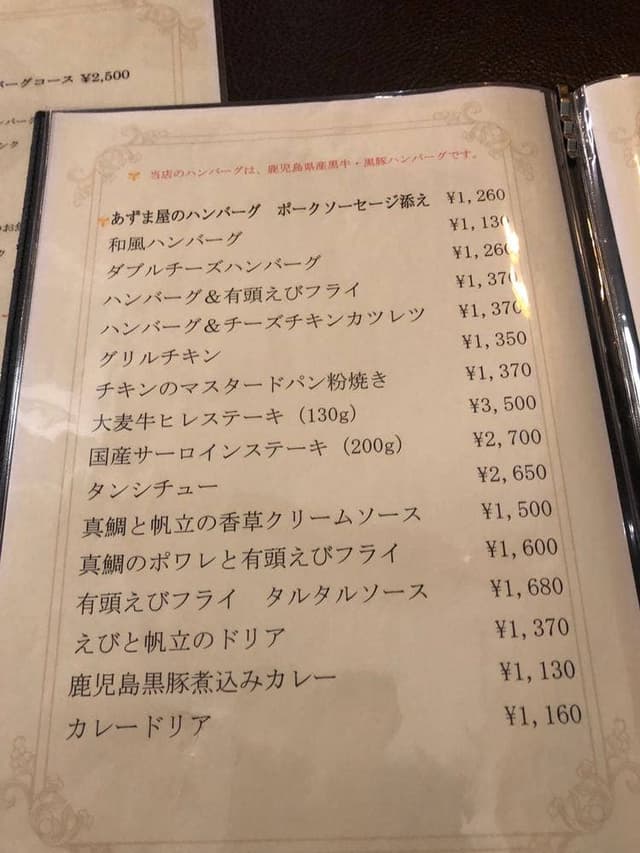 バーグコース ¥2,500
ンバー
ンク
ク
当店のハンバーグは、鹿児島県産黒牛・黒豚ハンバーグです。
あずま屋のハンバーグ ポークソーセージ添え ¥1,260
和風ハンバーグ ¥1,130
ダブルチーズハンバーグ ¥1,260
ハンバーグ＆有頭えびフライ ¥1,370
ハンバーグ＆チーズチキンカツレツ ¥1,370
グリルチキン ¥1,350
チキンのマスタードパン粉焼き ¥1,370
大麦牛ヒレステーキ（130g） ¥3,500
国産サーロインステーキ（200g） ¥2,700
タンシチュー ¥2,650
真鯛と帆立の香草クリームソース ¥1,500
真鯛のポワレと有頭えびフライ ¥1,600
有頭えびフライ タルタルソース ¥1,680
えびと帆立のドリア ¥1,370
鹿児島黒豚煮込みカレー ¥1,130
カレードリア ¥1,160